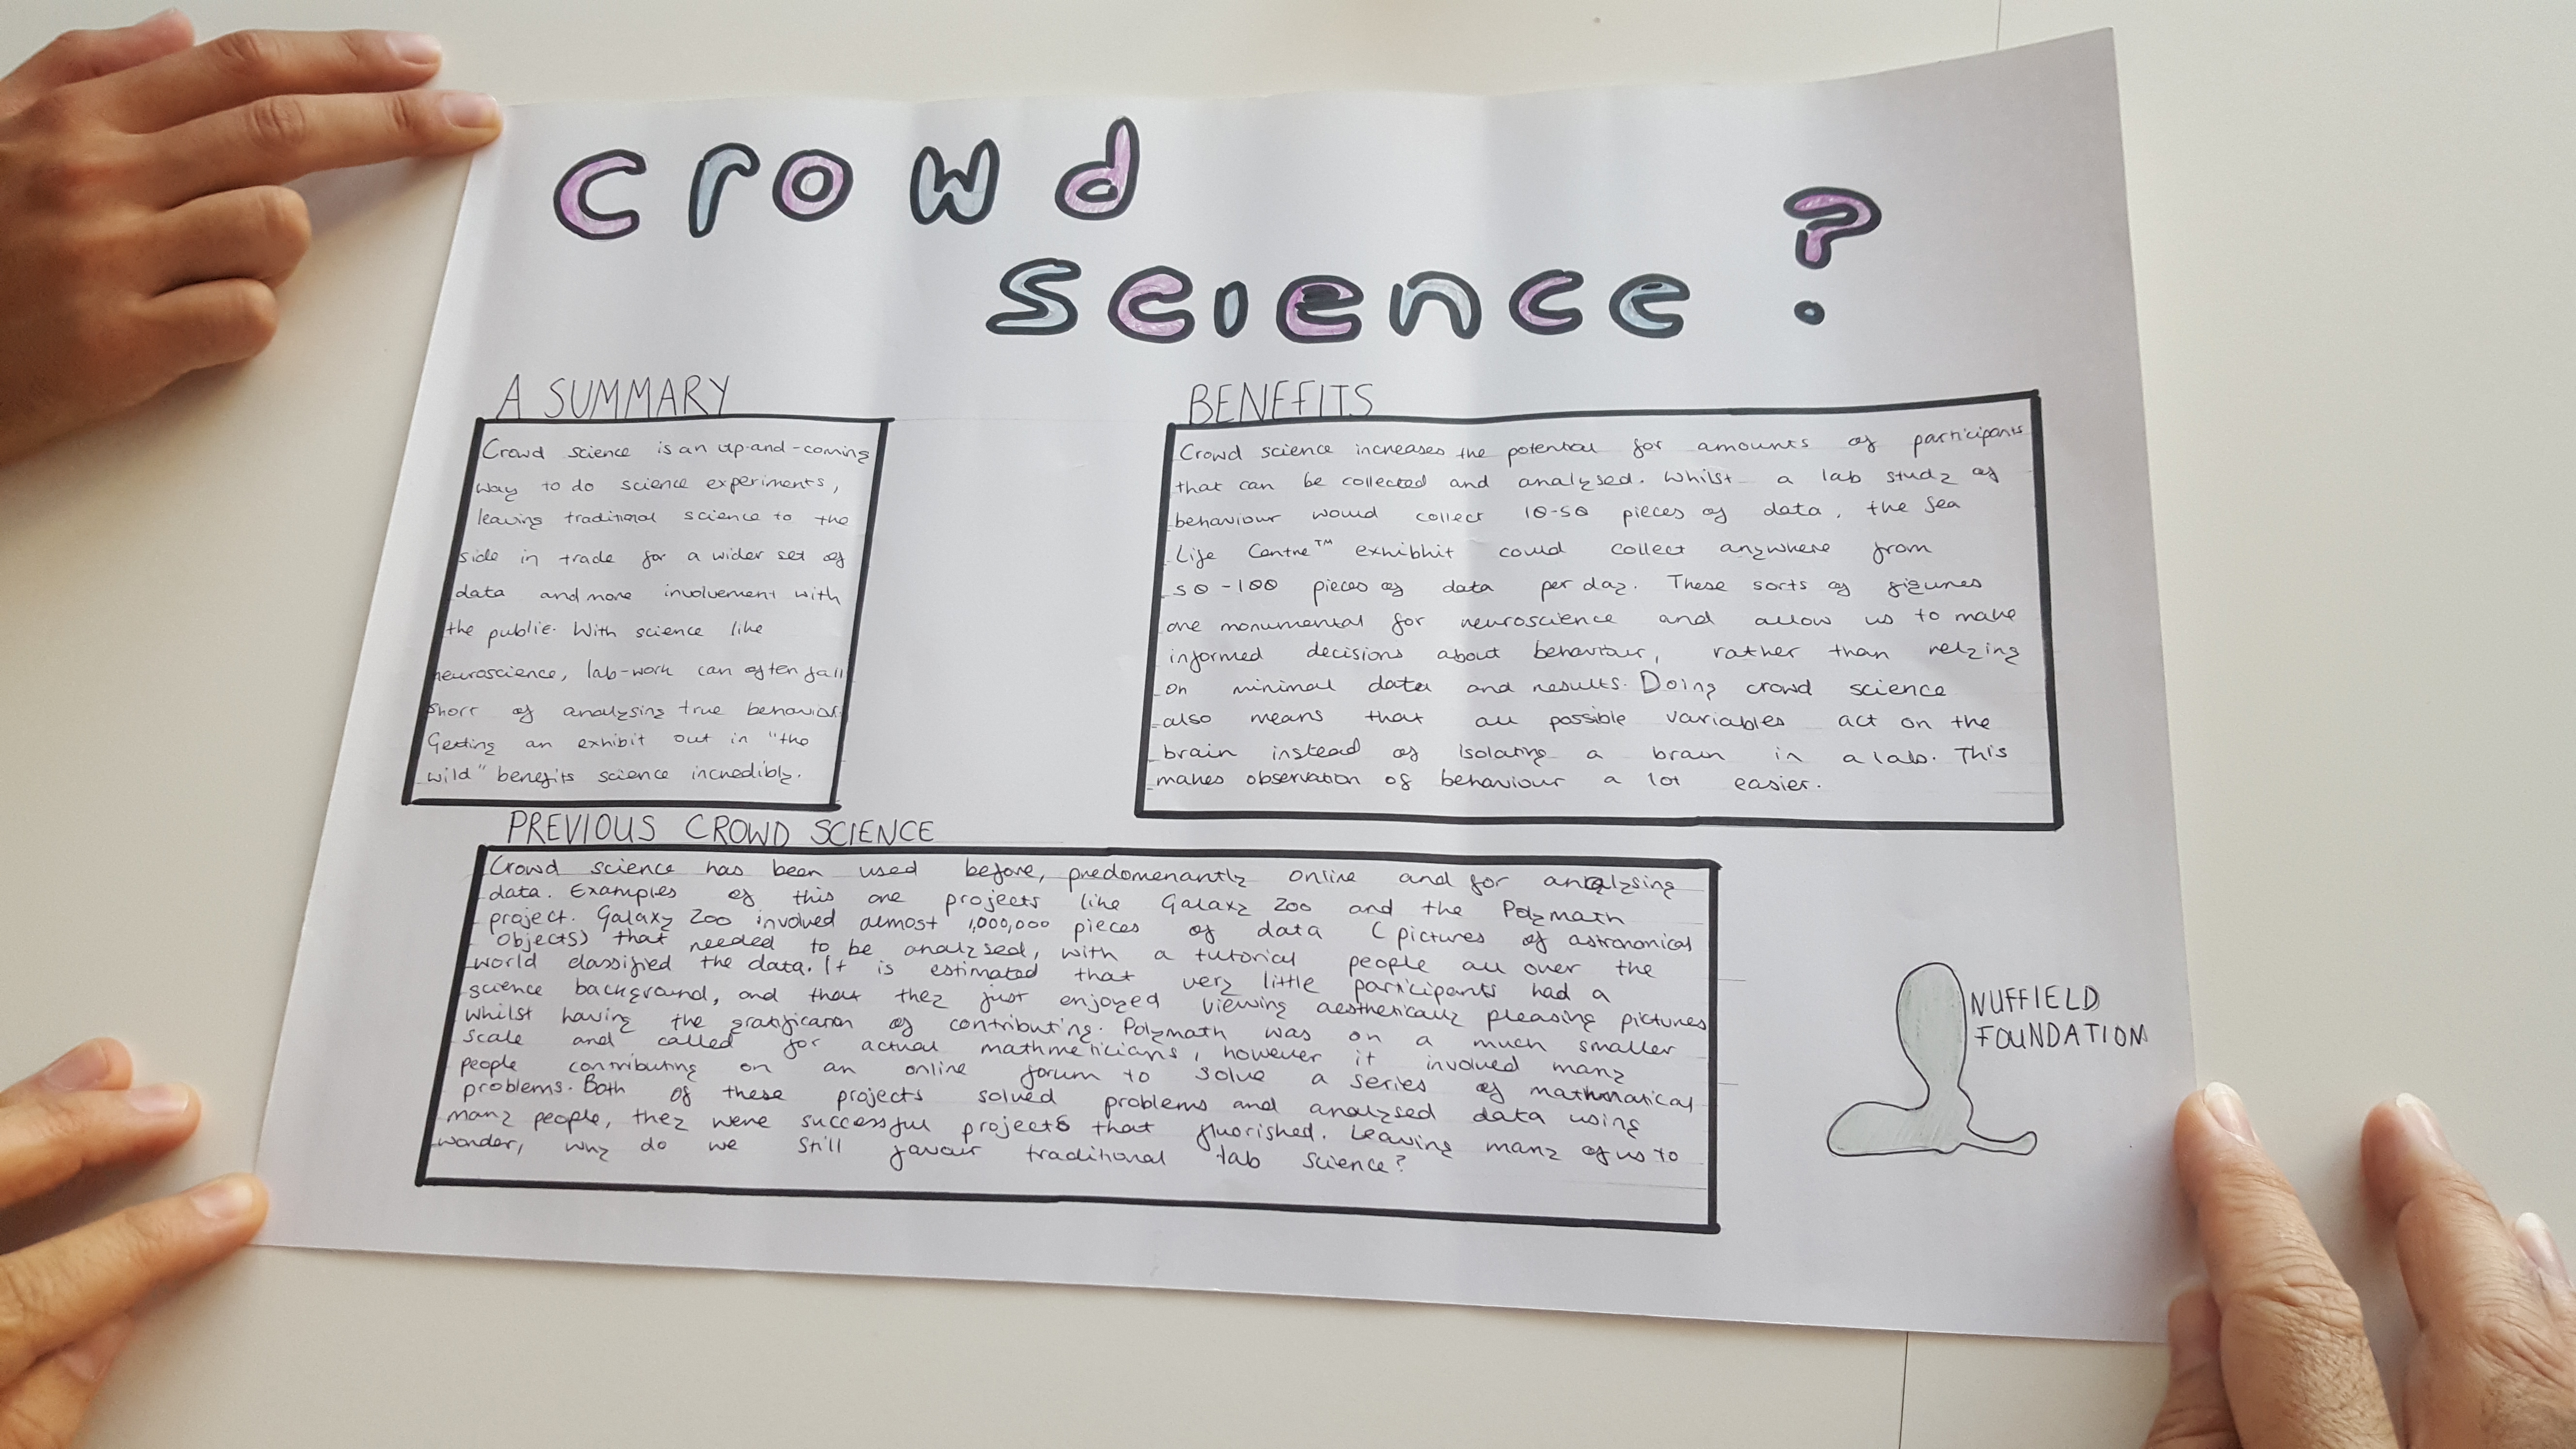 crowd
science ?
A SUMMARY
Crowd science is an up-and-coming
way to do science experiments,
leaving traditional science to the
side in trade for a wider set of
data and more involvement with
the public. With science like
neuroscience, lab-work can often fall
short of analysing true behaviour.
Getting an exhibit out in "the
wild" benefits science incredibly.
BENEFITS
Crowd science increases the potential for amounts of participants
that can be collected and analysed. Whilst a lab study of
behaviour would collect 10-50 pieces of data, the Sea
Life Centre™ exhibhit could collect anywhere from
50-100 pieces of data per day. These sorts of figures
are monumental for neuroscience and allow us to make
informed decisions about behaviour, rather than relying
on minimal data and results. Doing crowd science
also means that all possible variables act on the
brain instead of isolating a brain in a lab. This
makes observation of behaviour a lot easier.
PREVIOUS CROWD SCIENCE
Crowd science has been used before, predomenantly online and for analysing
data. Examples of this are projects like Galaxy Zoo and the Polymath
project. Galaxy Zoo involved almost 1,000,000 pieces of data (pictures of astronomical
objects) that needed to be analysed, with a tutorial people all over the
world classified the data. It is estimated that very little participants had a
science background, and that they just enjoyed viewing aesthetically pleasing pictures
whilst having the gratification of contributing. Polymath was on a much smaller
scale and called for actual mathmeticians, however it involved many
people contributing on an online forum to solve a series of mathmatical
problems. Both of these projects solved problems and analysed data using
many people, they were successful projects that fluorished. Leaving many of us to
wonder, why do we still favour traditional lab science?
NUFFIELD
FOUNDATION